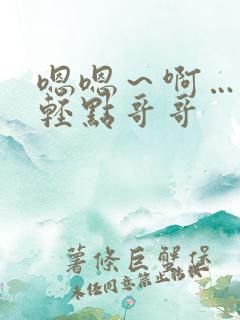 嗯嗯～啊…
輕點哥哥
薯條巨蟹堡
未任同意禁止轉載